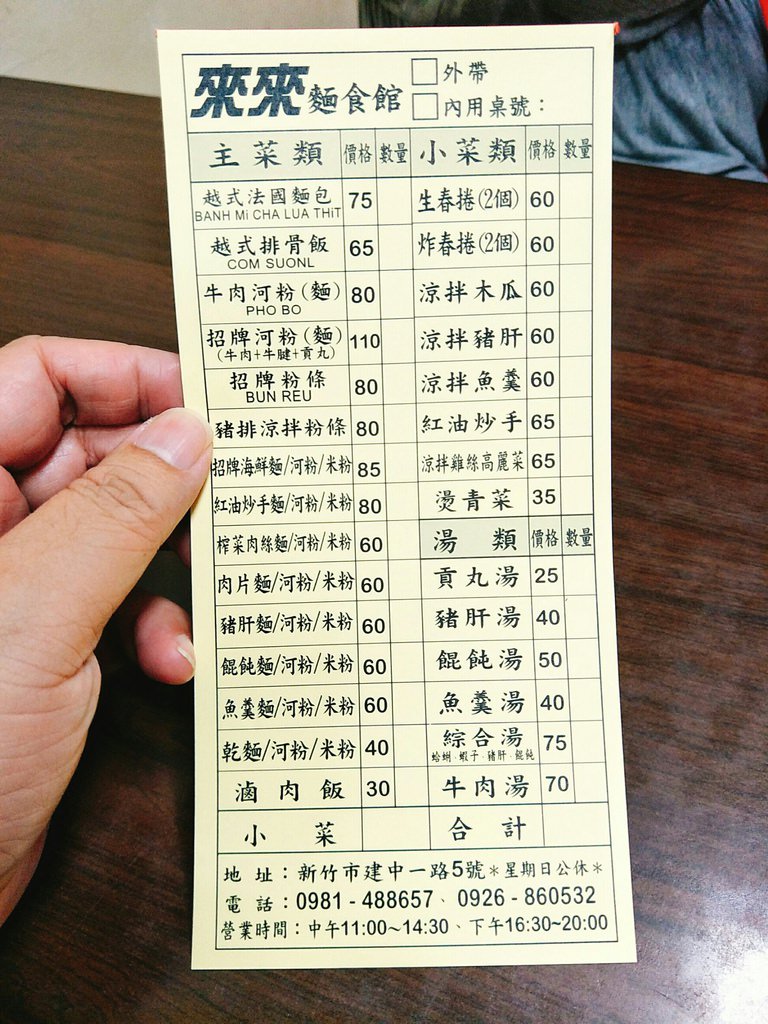 來來麵食館 □外帶
□內用桌號：
主菜類 價格 數量 小菜類 價格 數量
越式法國麵包 75 生春捲(2個) 60
BANH Mi CHA LUA THiT
越式排骨飯 65 炸春捲(2個) 60
COM SUONL
牛肉河粉(麵) 80 涼拌木瓜 60
PHO BO
招牌河粉(麵) 110 涼拌豬肝 60
(牛肉+牛腱+貢丸)
招牌粉條 80 涼拌魚羹 60
BUN REU
豬排涼拌粉條 80 紅油炒手 65
招牌海鮮麵/河粉/米粉 85 涼拌雞絲高麗菜 65
紅油炒手麵/河粉/米粉 80 燙青菜 35
榨菜肉絲麵/河粉/米粉 60 湯類 價格 數量
肉片麵/河粉/米粉 60 貢丸湯 25
豬肝麵/河粉/米粉 60 豬肝湯 40
餛飩麵/河粉/米粉 60 餛飩湯 50
魚羹麵/河粉/米粉 60 魚羹湯 40
乾麵/河粉/米粉 40 綜合湯 75
蛤蜊·蝦子·豬肝·餛飩
滷肉飯 30 牛肉湯 70
小菜 合計
地址：新竹市建中一路5號＊星期日公休＊
電話：0981-488657、0926-860532
營業時間：中午11:00~14:30、下午16:30~20:00